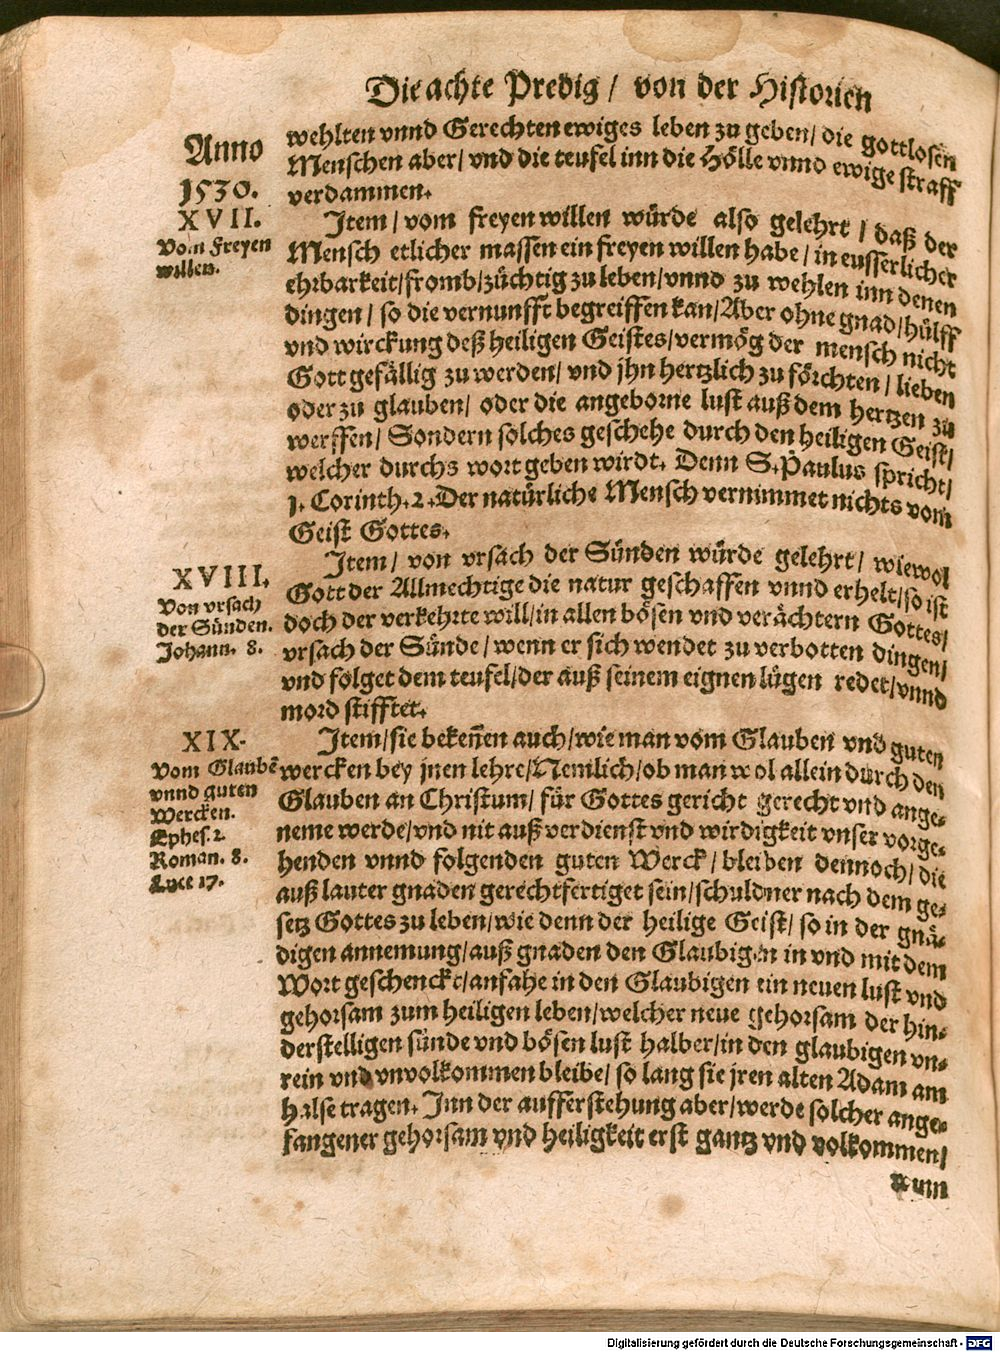 Die achte Predig / von der Historien
Anno
1530.
wehlten vnnd Gerechten ewiges leben zu geben / die gottlosen
Menschen aber / vnd die teufel inn die Hölle vnnd ewige straff
verdammen.
XVII.
Vom Freyen
willen.
Item / vom freyen willen würde also gelehrt / daß der
Mensch etlicher massen ein freyen willen habe / in eusserlicher
ehrbarkeit / fromb / züchtig zu leben / vnnd zu wehlen inn denen
dingen / so die vernunfft begreiffen kan / Aber ohne gnad / hülff
vnd wirckung deß heiligen Geistes / vermög der mensch nicht
Gott gefällig zu werden / vnd jhn hertzlich zu förchten / lieben
oder zu glauben / oder die angeborne lust auß dem hertzen zu
werffen / Sondern solches geschehe durch den heiligen Geist /
welcher durchs wort geben wirdt. Denn S. Paulus spricht /
1. Corinth. 2. Der natürliche Mensch vernimmet nichts vom
Geist Gottes.
XVIII.
Von vrsach
der Sünden.
Johann. 8.
Item / von vrsach der Sünden würde gelehrt / wiewol
Gott der Allmechtige die natur geschaffen vnnd erhelt / so ist
doch der verkehrte will / in allen bösen vnd verächtern Gottes /
vrsach der Sünde / wenn er sich wendet zu verbotten dingen /
vnd folget dem teufel / der auß seinem eignen lügen redet / vnnd
mord stifftet.
XIX.
Vom Glaubē
vnnd guten
Wercken.
Ephes. 2.
Roman. 8.
Luce 17.
Item / sie bekeñen auch / wie man vom Glauben vnd guten
wercken bey jnen lehre / Nemlich / ob man wol allein durch den
Glauben an Christum / für Gottes gericht gerecht vnd ange-
neme werde / vnd nit auß verdienst vnd wirdigkeit vnser vorge-
henden vnnd folgenden guten Werck / bleiben dennoch / die
auß lauter gnaden gerechtfertiget sein / schuldner nach dem ge-
setz Gottes zu leben / wie denn der heilige Geist / so in der gnä-
digen annemung / auß gnaden den Glaubigen in vnd mit dem
Wort geschenckt / anfahe in den Glaubigen ein neuen lust vnd
gehorsam zum heiligen leben / welcher neue gehorsam der hin-
derstelligen sünde vnd bösen lust halber / in den glaubigen vn-
rein vnd vnvolkommen bleibe / so lang sie jren alten Adam am
halse tragen. Inn der aufferstehung aber / werde solcher ange-
fangener gehorsam vnd heiligkeit erst gantz vnd volkommen /
zum
Digitalisierung gefördert durch die Deutsche Forschungsgemeinschaft - DFG